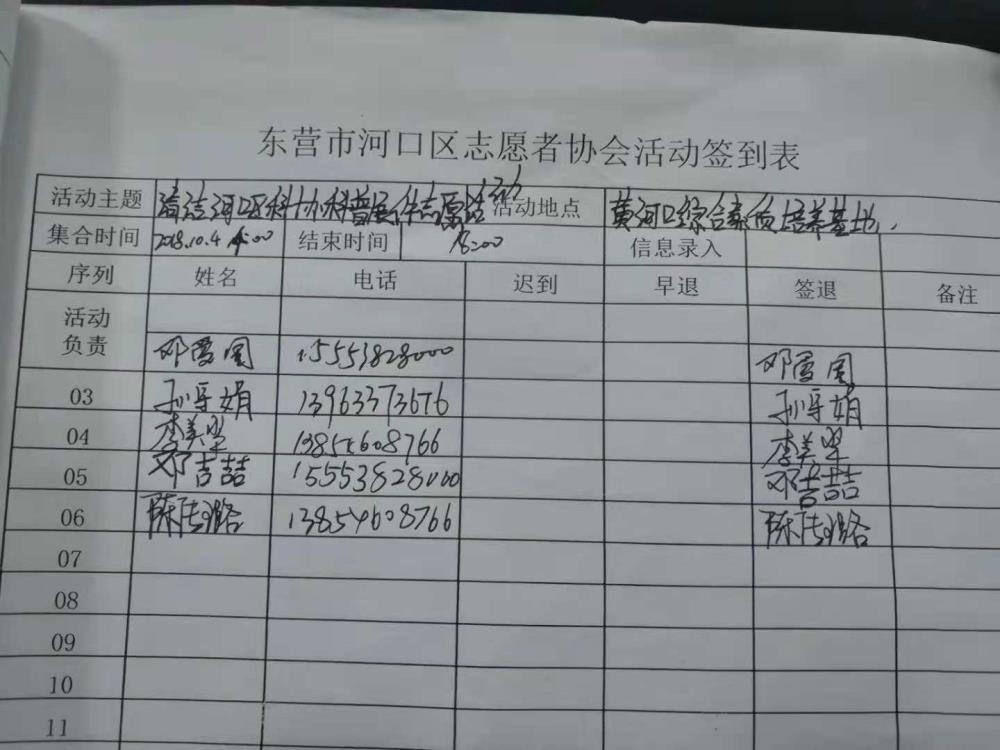 东营市河口区志愿者协会活动签到表
活动主题 清洁河口区科协科普展伴志愿活动 活动地点 黄河口综合素质培养基地.
集合时间 2018.10.4 结束时间 18:00 信息录入
序列 姓名 电话 迟到 早退 签退 备注
活动
负责 邓爱国 15553828000 邓爱国
03 孙 娟 13963373676 孙 娟
04 李美 13854608766 李美
05 邓吉喆 15553828000 邓吉喆
06 陈 璐 13854608766 陈 璐
07
08
09
10
11